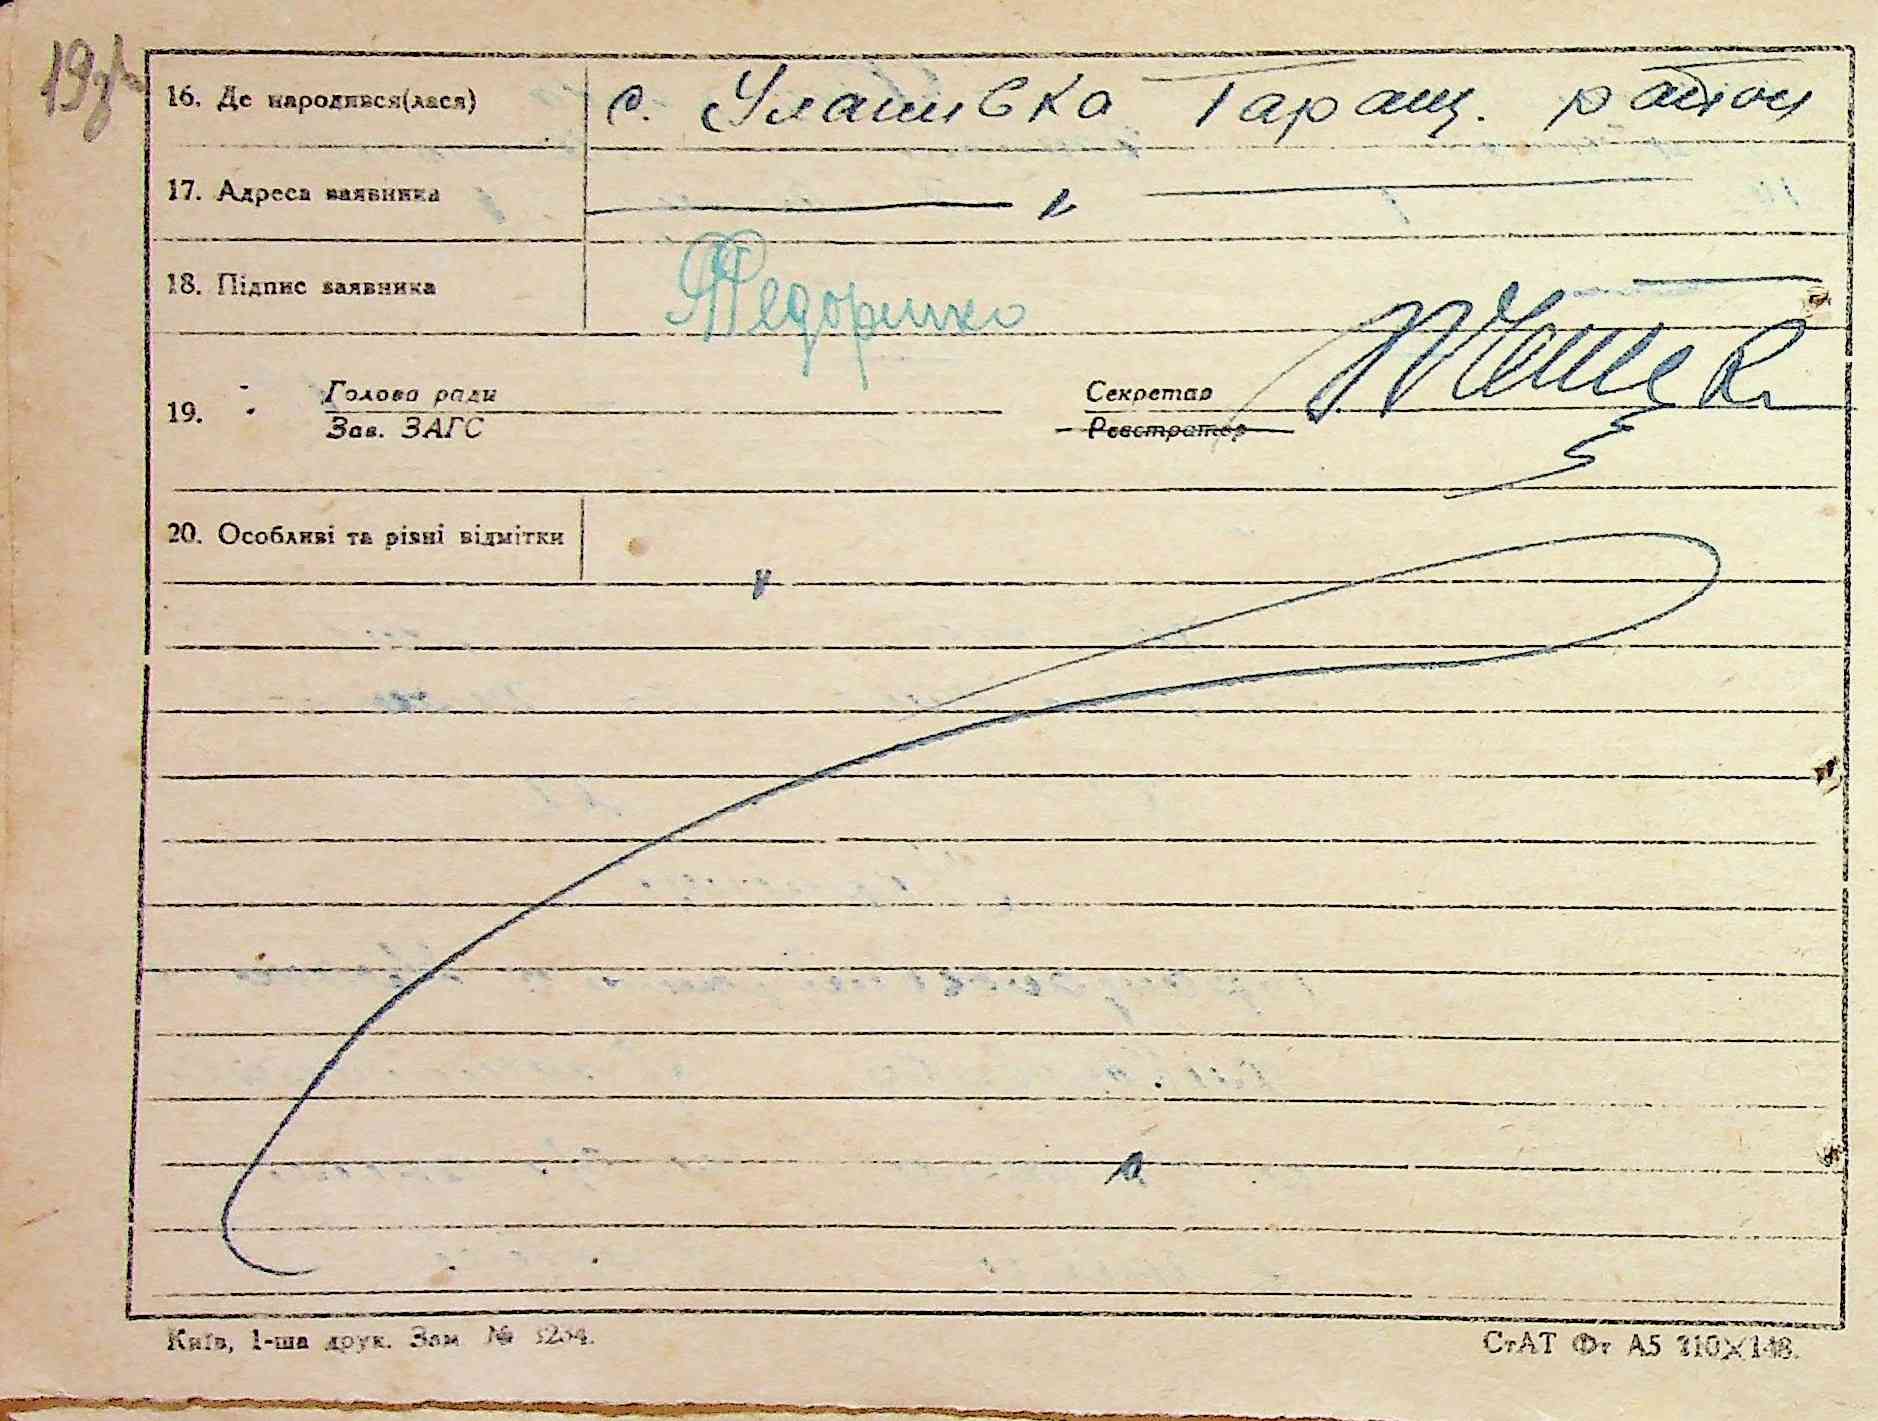 19зв
16. Де народився(лася) с. Улашивка Таращ. район
17. Адреса заявника — " —
18. Підпис заявника Федоренко
Голова ради Секретар
19.
Зав. ЗАГС Реєстратор
20. Особливі та різні відмітки
Київ, 1-ша друк. Зам № 3264.
СтАТ Фт А5 210×148.